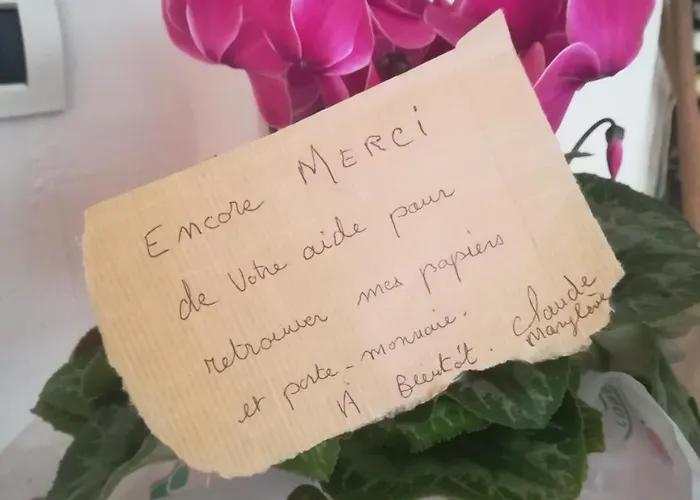 Encore MERCI
de Votre aide pour
retrouver mes papiers
et porte-monnaie.
À Bientôt. Claude